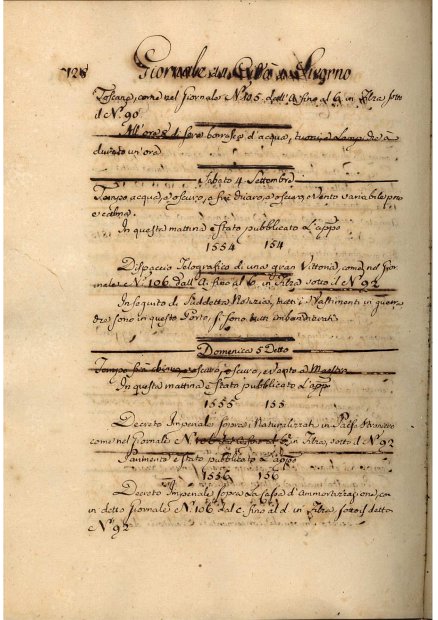 128 Giornale di Città di Livorno
Toscana, come nel Giornale Nº. 105. dall'A. fino al G. in Filza sotto
il Nº. 90
All'ore 4 sera borrasca d'acqua, tuoni, e lampi che à
durato un'ora
Sabato 4 Settembre
Tempo acquoso, e oscuro, e vento variabile
e calma.
In questa mattina è stato pubblicato L'appo
1554 154
Dispaccio Telegrafico di una gran Vittoria, come nel Gior-
nale Nº. 106. dall'A. fino al G. in Filza sotto il Nº. 92
In seguito di suddetta Notizia, tutti i Bastimenti in guer-
ra sono in questo Porto, si sono tutti imbandierati
Domenica 5 Detto
Tempo oscuro, e vento a Maestro
In questa mattina è stato pubblicato L'appo
1555 155
Decreto Imperiale sopra i Naturalizzati in Paese Straniero
come nel Giornale Nº 106 in Filza, sotto il Nº. 92
Parimente è stato pubblicato L'appo
1556 156
Decreto Imperiale sopra la Cassa d'Ammortizzazione, co-
in detto Giornale Nº. 106 dal C. fino al d. in Filza sotto il detto
Nº. 92